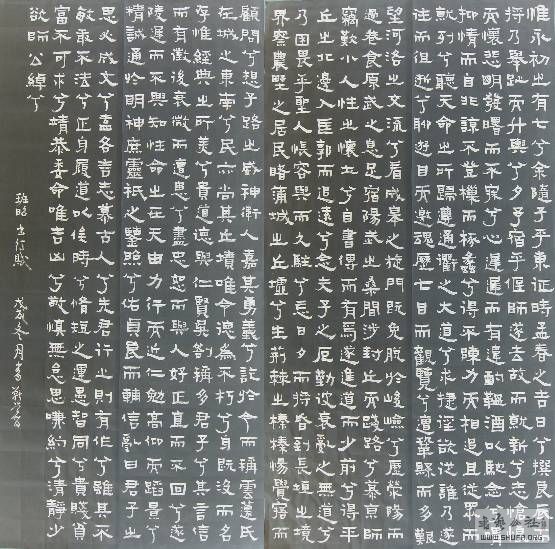 惟永初之有七兮余隨子乎東征時孟春之吉日兮撰良辰而
将行乃舉趾而升輿兮夕予宿乎偃師遂去故而就新兮志愴悢
而懷悲明發曙而不寐兮心遲遲而有違酌鐏酒以馳念兮喟
抑情而自非諒不登樔而椓蠡兮得不陳力而相追且從眾而
就列兮聽天命之所歸遵通衢之大道兮求捷徑欲從誰乃遂
往而徂逝兮聊遊目而遨魂歷七邑而觀覽兮遭鞏縣而多艱
望河洛之交流兮看成皋之旋門既免脫於峻嶮兮歷滎陽而
過卷食原武之息足宿陽武之桑間涉封丘而踐路兮慕京師而
竊歎小人性之懷土兮自書傳而有焉遂進道而少前兮得平
丘之北邊入匡郭而追遠兮念夫子之厄勤彼衰亂之無道兮
乃困畏乎聖人悵容與而久駐兮忘日夕而將昏到長垣之境
界察農野之居民睹蒲城之丘墟兮生荊棘之榛榛惕覺寤而
顧問兮想子路之威神衛人嘉其勇義兮訖於今而稱雲蘧氏
在城之東南兮民亦尚其丘墳唯令德為不朽兮身既沒而名
存惟經典之所美兮貴道德與仁賢吳札稱多君子兮其言信
而有徵後衰微而遭患兮盡忠恕而與人好正直而不回兮遂
陵遲而不興知性命之在天由力行而近仁勉高仰而蹈景兮
精誠通於明神庶靈祇之鑒照兮佑貞良而輔信亂曰君子之
思必成文兮盍各言志慕古人兮先君行止則有作兮雖其不
敏敢不法兮正身履道以俟時兮脩短之運愚智同兮貴賤貧
富不可求兮靖恭委命唯吉凶兮敬慎無怠思嗛約兮清靜少
欲師公綽兮
班昭東征賦 戊戌冬月書
WWW.SHUFA.ORG